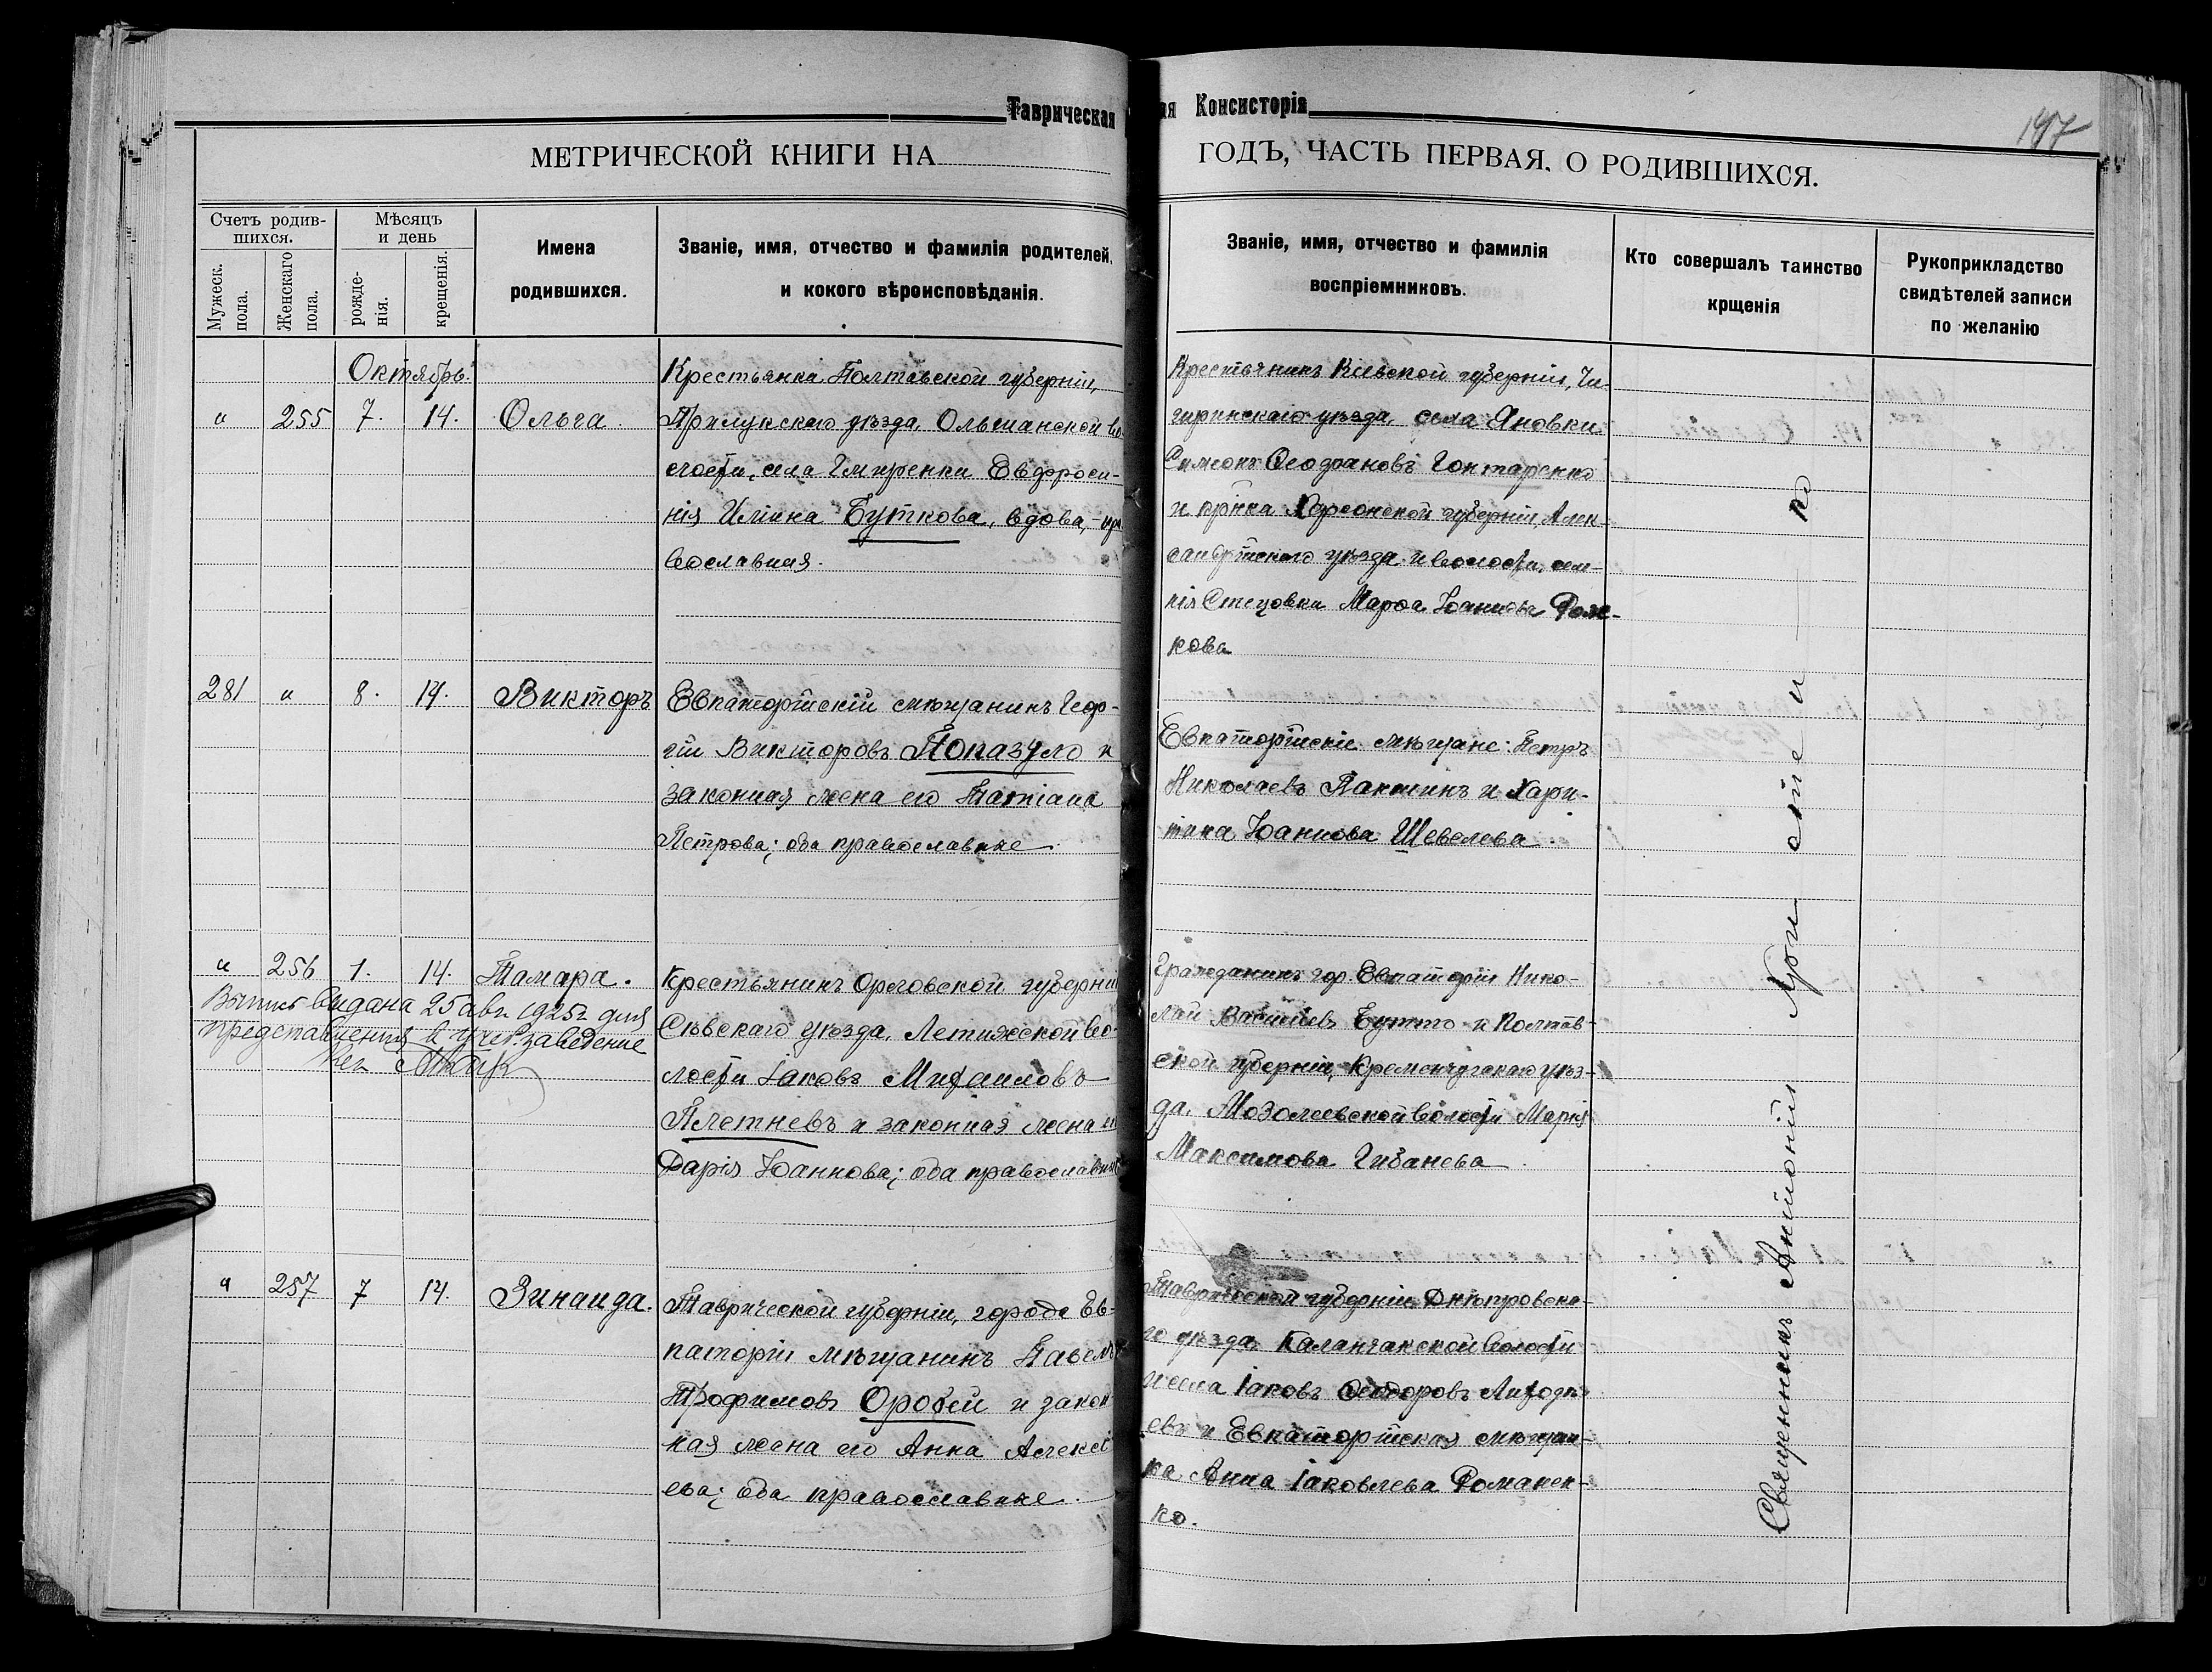 Таврическая
ая Консисторія
197
МЕТРИЧЕСКОЙ КНИГИ НА
ГОДЪ, ЧАСТЬ ПЕРВАЯ, О РОДИВШИХСЯ.
Счетъ родив-
шихся.
Мужеск.
пола.
Женскаго
пола.
Мѣсяцъ
и день
рожде-
нія.
крещенія.
Имена
родившихся.
Званіе, имя, отчество и фамилія родителей,
и кокого вѣроисповѣданія.
Званіе, имя, отчество и фамилія
воспріемниковъ.
Кто совершалъ таинство
крщенія
Рукоприкладство
свидѣтелей записи
по желанію
Октябрь.
" 255 7. 14. Ольга.
Крестьянка Полтавской губерніи,
Прилукскаго уѣзда, Ольшанской во-
лости, села Гмиренки Евдороси-
нія Иліина Буткова, вдова, - пра
вославная.
Крестьянинъ Кіевской губерніи, Чи-
гиринскаго уѣзда, села Яновки
Симеонъ Ѳеофановъ Гонтаренко
и кр-нка Херсонской губерніи, Алек-
сандрійскаго уѣзда и волости, сем-
нія Стецовки Марѳа Іоаннова Рож-
кова
281 " 8. 14. Викторъ
Евпаторійскій мѣщанинъ Геор-
гій Викторовъ Попазуло и
законная жена его Татіана
Петрова; оба православные
Евпаторійскіе мѣщане: Петръ
Николаевъ Пакшинъ и Хари-
тина Іоаннова Шевелева
" 256 1. 14. Тамара.
Выпись выдана 25 авг. 1925 г. для
представления в учеб. заведение
Крестьянинъ Орловской губерніи
Сѣвскаго уѣзда, Летижской во-
лости Іаковъ Михаиловъ
Плетневъ и законная жена е
Дарія Іоаннова; оба православные
Гражданинъ гор. Евпаторіи Нико-
лай Василіевъ Бутто и Полтав-
ской губерніи, Кременчугскаго уѣз-
да, Мозолеевской волости Марія
Максимова Гибанева
" 257 7 14. Зинаида.
Таврической губерніи, города Ев-
паторіи мѣщанинъ Павелъ
Трофимовъ Оробей и закон
ная жена его Анна Алексѣ
ева; оба православные.
Таврической губерніи Днѣпровска-
го уѣзда Каланчакской волости
и села Іаковъ Ѳеодоровъ Лиходѣ-
евъ и Евпаторійская мѣщан-
ка Анна Іаковлева Романен-
ко.
Священникъ Антоній